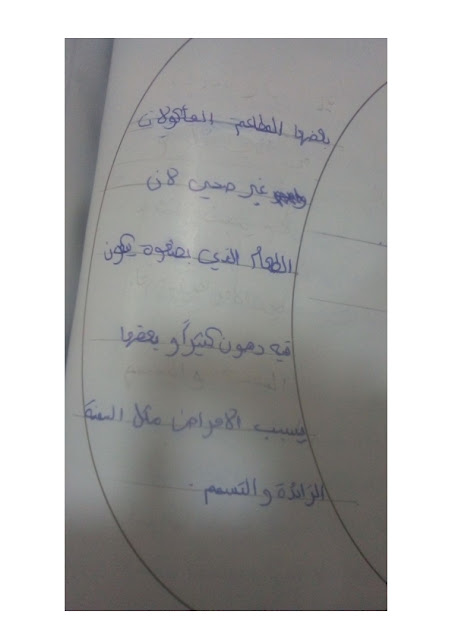 بعضها المطاعم المأكولات
غير صحي لان
الطعام الذي بضعوه يكون
فيه دهون كثيراً و بعضها
يسبب الامراض مثل السمنة
الزائدة و التسمم .